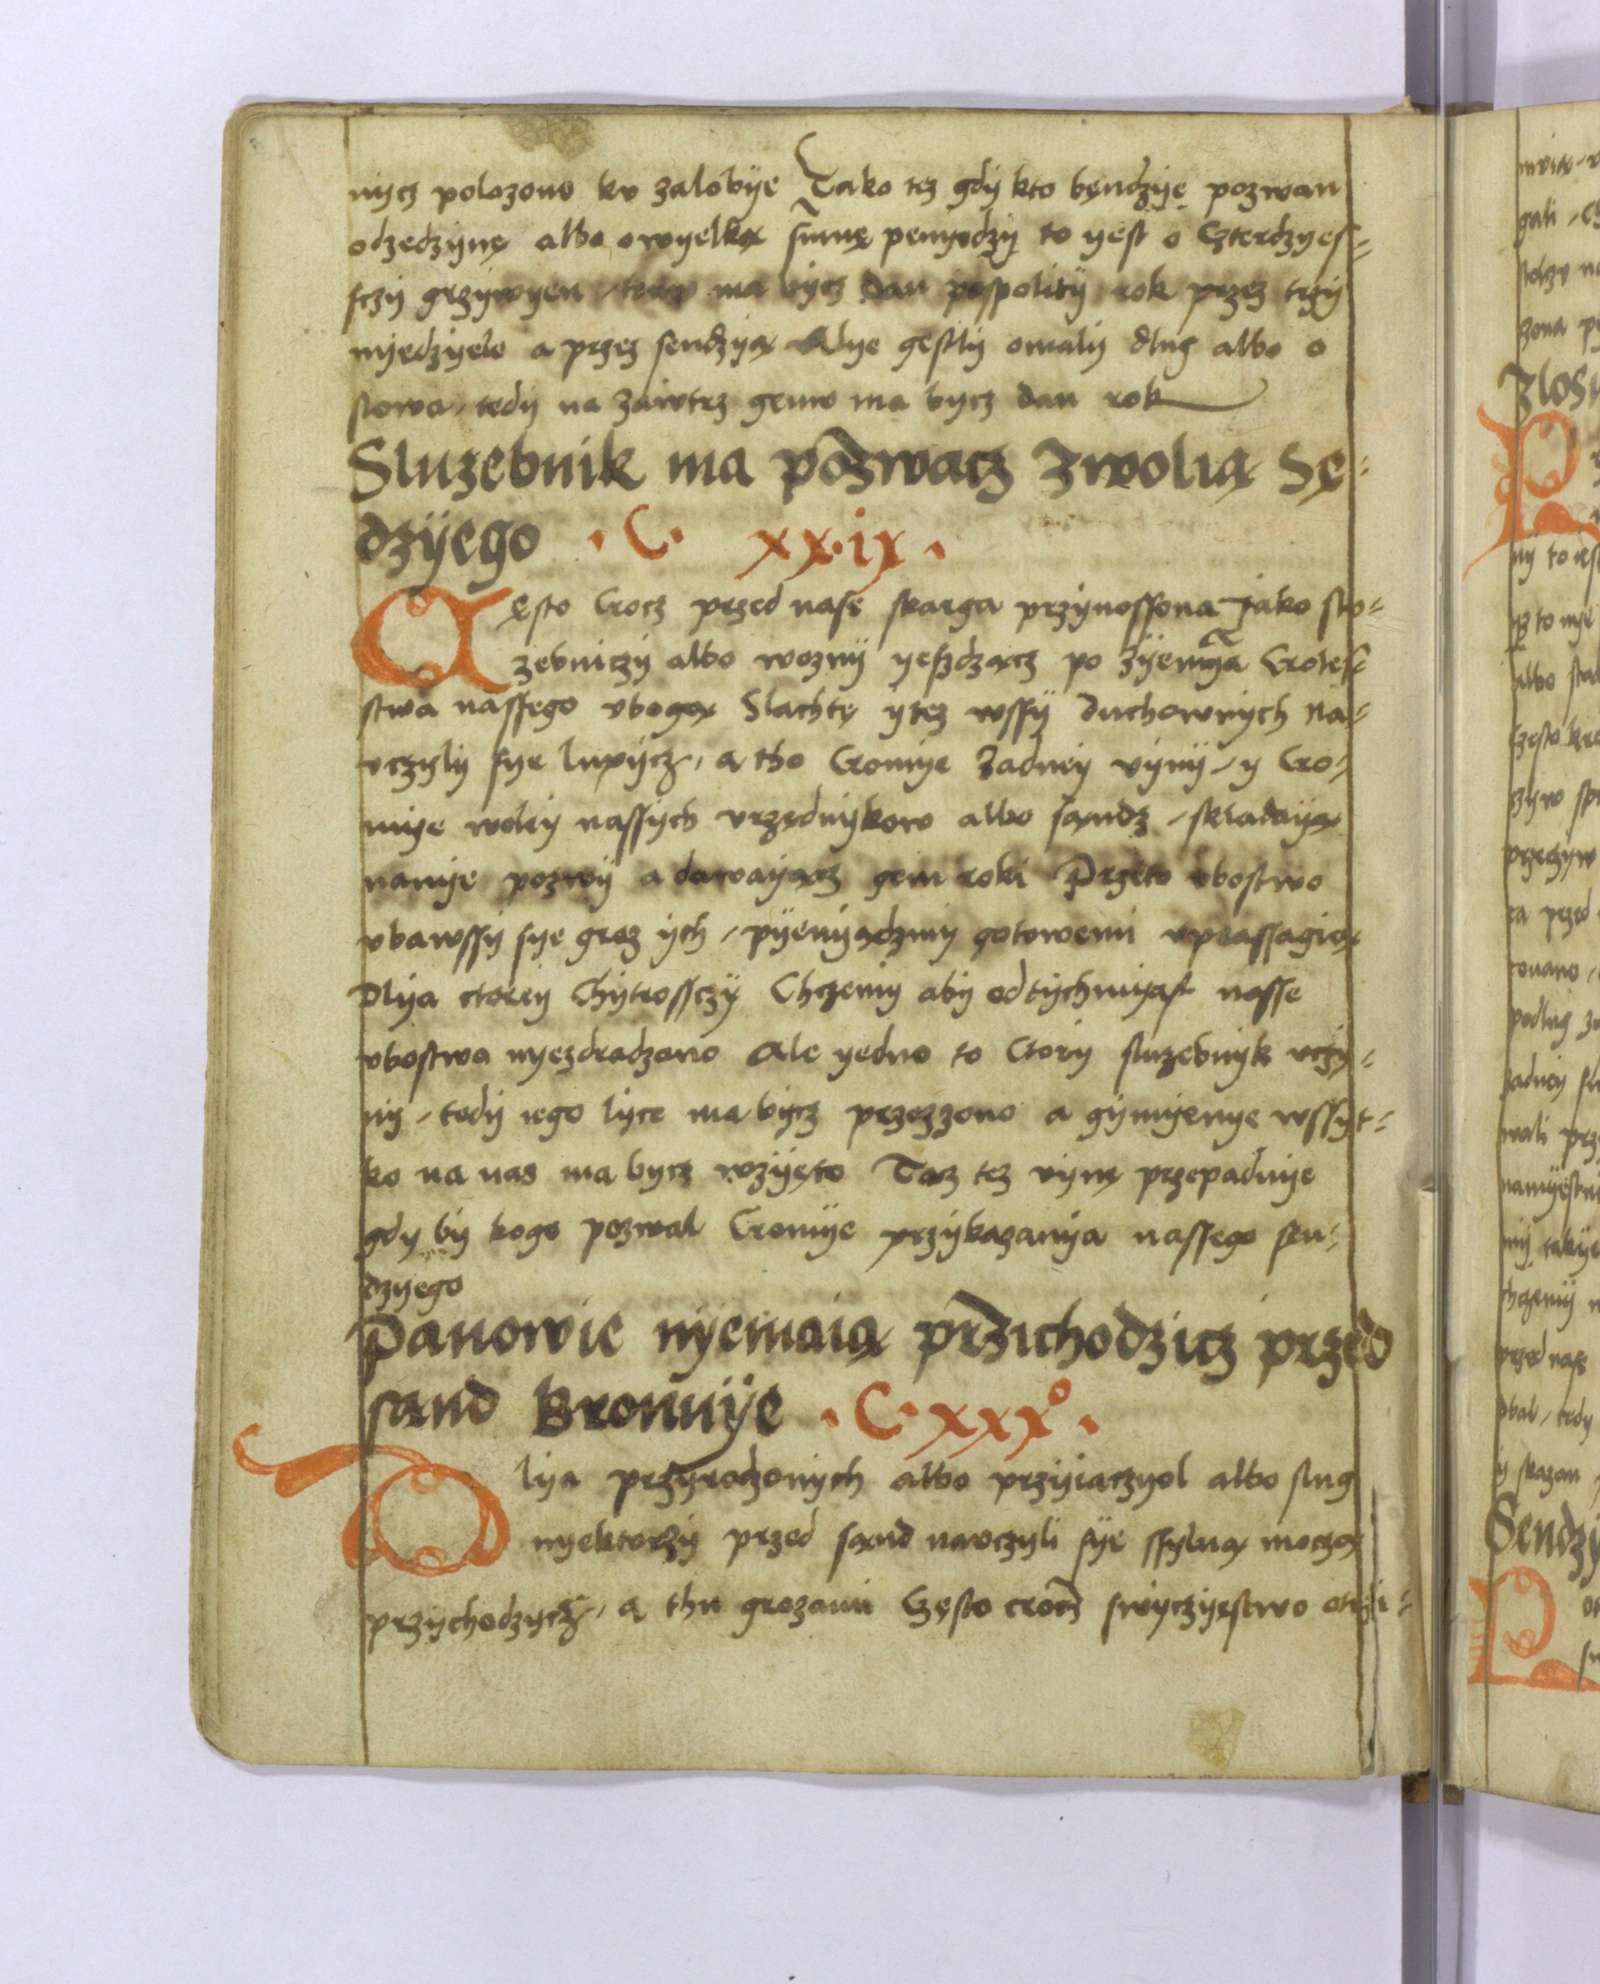 nycz polozono kv zalobÿe Tako tez gdÿ kto bęndzÿę pozwan
odzedzÿnę albo owyelkɑ̨ sum̄ę penyędzÿ to yest o Czterdzyes-
sczÿ grzÿwyen / tedÿ ma bÿcz dan pospolitÿ rok przez trzÿ
nÿedzÿele a przez sendzÿą Alye gestlÿ omalÿ dlug albo o
slowa / tedÿ na zawtrz gemv ma bycz dan rok
Sluzebnik ma pozwacz zwolią Sę-
dzÿego · C · xx·ix ·
Cęsto Crocz przed nasę skarga przÿnossona Jako slv-
zebniczÿ albo woznÿ yeszdząc​z po zÿemyą Crolef-
stwa nassego vbogą Slachtę ÿtez wssÿ duchownÿch na-
vczÿlÿ sÿe lupÿcz, a tho Cromye zadneÿ vÿnÿ / y Cro-
mÿe woleÿ nassÿch vrzędnÿkow albo sąndz / skladaÿą
nanÿe pozwÿ a dawaÿącz gem roki Przeto vbostwo
vbawssÿ sÿe groz ÿch / pÿenÿądzmÿ gotowemi vprassagią
Dlÿa ctoreÿ Chÿtrossczÿ Chczemÿ abÿ odtÿchmyast nasse
vbostwa nyezdradzano Ale yedno to Ctorÿ sluzebnÿk vczÿ-
nÿ / tedÿ iego lÿce ma bÿcz przezzono a gÿmyenye wssÿt-
ko na nas ma bycz wzÿęto Taz tez vÿnę przepadnÿe
gdy bÿ kogo pozwal Cromÿe przÿkazanÿa nassego sen-
dzyego
Panowie nÿemaią przichodzicz przed
sand Bronnÿe · C · xxx° ·
Dlya przÿrodzonÿch albo przÿiaczyol albo slug
nyektorzÿ przed sąnd navczyli sÿe ssylną moczą
przychodzycz, a thu grozami Często crocz swÿczÿęstwo otrzi-